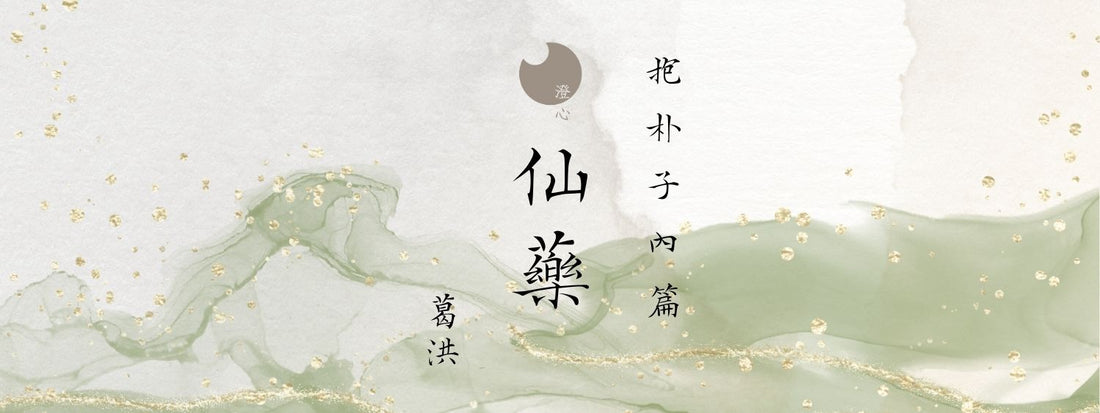 抱朴子內篇
澄心
仙藥
葛洪